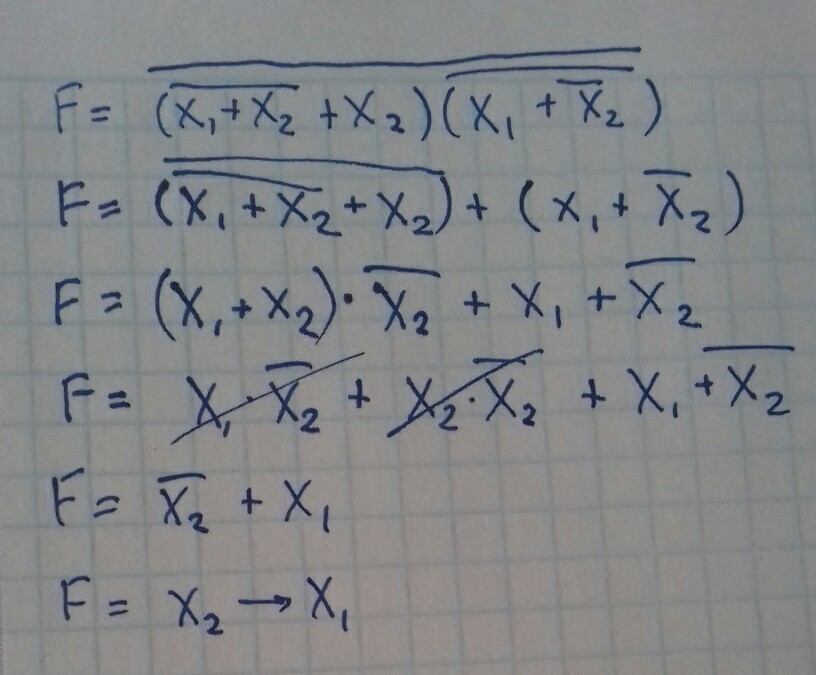 F = \overline{(\overline{X_1 + X_2} + X_2)(\overline{X_1 + \overline{X}_2})}
F = (\overline{\overline{X_1 + X_2} + X_2}) + (X_1 + \overline{X}_2)
F = (X_1 + X_2) · \overline{X_2} + X_1 + \overline{X_2}
F = X_1 · \overline{X_2} + X_2 · \overline{X_2} + X_1 + \overline{X_2}
F = \overline{X_2} + X_1
F = X_2 → X_1